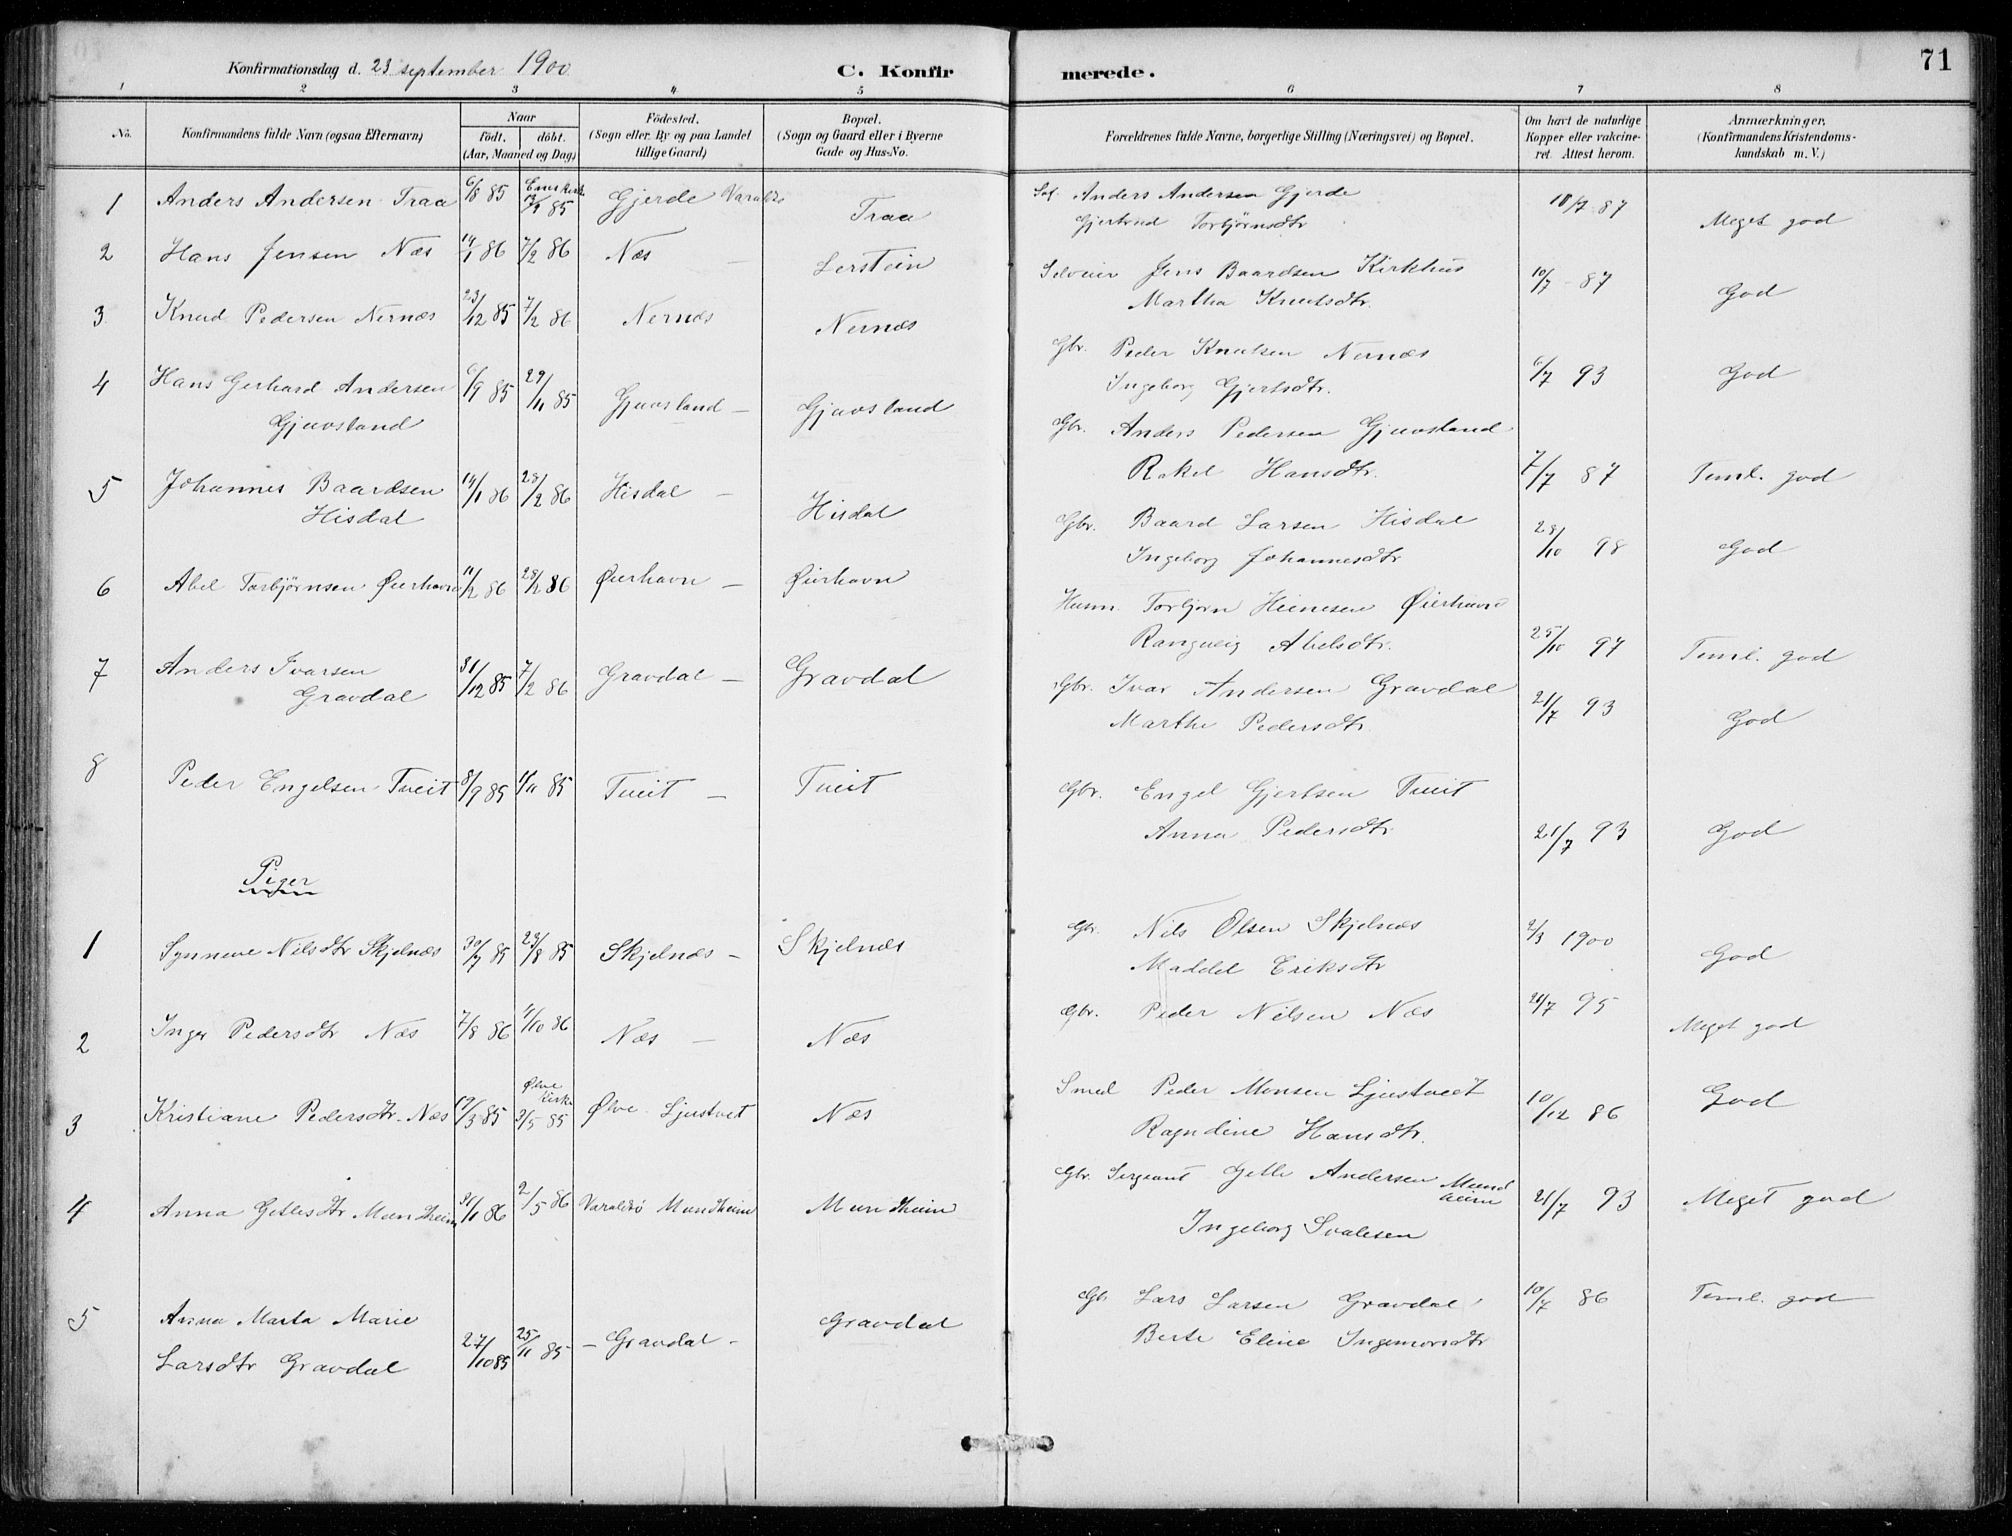 Konfirmationsdag d. 23 september 1900. C. Konfirmerede. 71
1 2 3 4 5 6 7 8
No. Konfirmandens fulde Navn (ogsaa Efternavn) Naar födt. döbt. (Aar, Maaned og Dag) Födested. (Sogn eller By og paa Landet tillige Gaard) Bopæl. (Sogn og Gaard eller i Byerne Gade og Hus-No. Forældrenes fulde Navne, borgerlige Stilling (Næringsvei) og Bopæl. Om havt de naturlige Kopper eller vakcineret. Attest herom. Anmærkninger, (Konfirmandens Kristendomskundskab m. V.)
1 Anders Andersen Traa 6/8 85 85 Gjerde Traa Anders Andersen Gjerde 10/7 87 Meget god
Gjertrud Torbjørnsdtr
2 Hans Jensen Næs 86 7/2 86 Næs — Lerstein Jens Baardsen Kirkhus 10/7 87 God
Martha Knutsdtr.
3 Knud Pedersen Nernæs 23/12 85 7/2 86 Nernæs Nernæs Gbr. Peder Knutsen Nernæs 6/7 93 God
Ingeborg Gjertsdtr.
4 Hans Gerhard Andersen 6/9 85 29/11 85 Gjuvsland — Gjuvsland Gbr. Anders Pedersen Gjuvsland
Gjuvsland Rakel Hansdtr. 7/7 87 Teml. god
5 Johannes Baardsen 14/1 86 28/2 86 Hisdal — Hisdal Gbr. Baard Larsen Hisdal 28/10 98 God
Hisdal Ingeborg Johannesdtr
6 Abel Torbjørnsen Øierhavn 11/2 86 28/2 86 Øierhavn — Øierhavn Husm. Torbjørn Øierhavn
Rangveig Abelsdtr. 25/10 97 Teml. god
7 Anders Ivarsen 31/12 85 7/2 86 Gravdal — Gravdal Gbr. Ivar Andersen Gravdal 21/7 93 God
Gravdal Marthe Pedersdtr.
8 Peder Engelsen Tveit 8/9 85 1/11 85 Tveit — Tveit Gbr. Engel Gjertsen Tveit
Anna Pedersdtr. 21/7 93 God
Piger
1 Synneve Nilsdtr Skjelnæs 30/7 85 23/8 85 Skjelnæs — Skjelnæs Gbr. Nils Olsen Skjelnæs 2/3 1900 God
Maddel Eriksdtr
2 Inger Pedersdtr Næs 7/8 86 86 Næs — Næs Gbr. Peder Nilsen Næs 21/7 95 Meget god
3 Kristiane Pedersdtr. Næs 85 Ølve Kirke 3/5 85 Ølve Ljustvet Næs Smed Peder Monsen Ljustveit 10/12 86 God
Ragndine Hansdtr.
4 Anna Getlesdtr Mundheim 86 2/5 86 Varaldsø Mundheim Mundheim Gbr. Sergeant Getle Andersen Mundheim 21/7 93 Meget god
Ingeborg Svalesen
5 Anna Marta Marie Gravdal Gbr. Lars Larsen Gravdal 10/7 86 Teml. god
Larsdtr Gravdal 27/10 85 25/11 85 — Gravdal — Berte Eline Ingemorsdtr